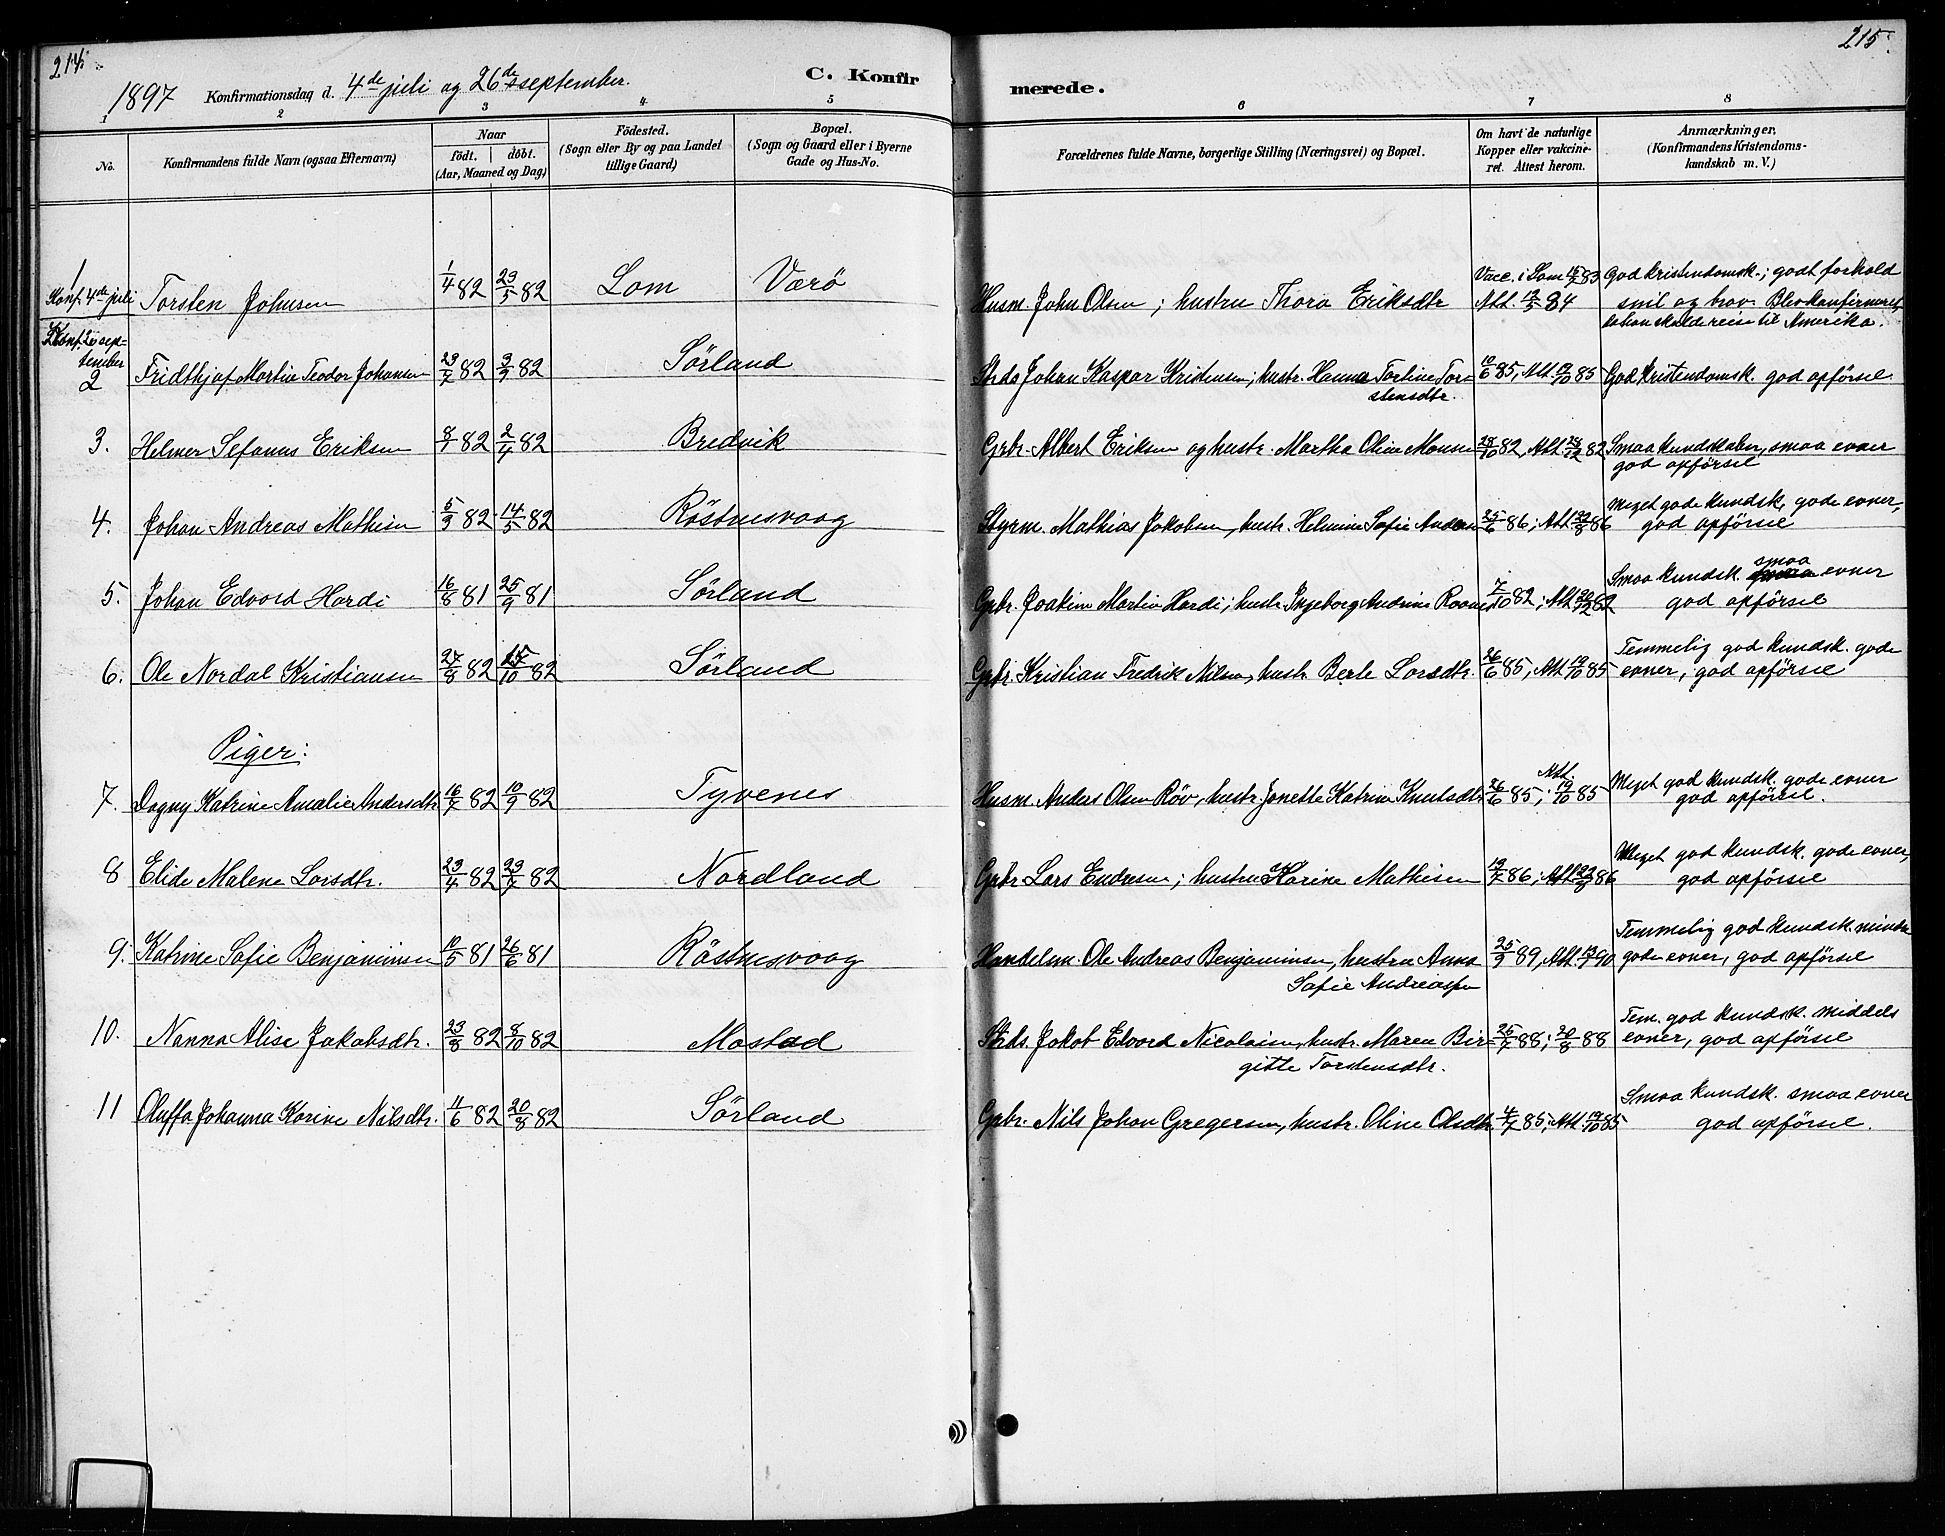 214.
215.
1897 Konfirmationsdag d. 4de juli og 26de september.
C. Konfirmerede.
1 2 3 4 5 6 7 8
No.
Konfirmandens fulde Navn (ogsaa Efternavn)
Naar
födt. | döbt.
(Aar, Maaned og Dag)
Födested.
(Sogn eller By og paa Landet
tillige Gaard)
Bopæl.
(Sogn og Gaard eller i Byerne
Gade og Hus-No.
Forældrenes fulde Navne, borgerlige Stilling (Næringsvei) og Bopæl.
Om havt de naturlige
Kopper eller vakcine-
ret. Attest herom.
Anmærkninger,
(Konfirmandens Kristendoms-
kundskab m. V.)
1 Konf. 4de juli Torsten Johnsen 1/4 82 23/5 82 Lom Værö Husm. John Olsen; hustru Thora Eriksdtr Vacc. i Lom 83 Att. 84 God kristendomsk.; godt forhold
snil og brav. Blev konfirmeret,
da han skulde reise til Amerika.
Konf. 26 sep-
tember
2 Fridthjof Martin Teodor Johansen 23/7 82 3/9 82 Sörland Strds Johan Kaspar Kristensen; hustr. Hanna Tortine Tor-
stensdtr. 10/6 85, Att. 19/10 85 God Kristendomsk. god opförsel
3. Helmer Sefanus Eriksen 8/1 82 2/4 82 Bredvik Grbr. Albert Eriksen og hustr. Martha Oline Monsen 28/10 82, Att. 28/12 82 Smaa kundskaber, smaa evner
god opförsel
4. Johan Andreas Mathisen 5/3 82 14/5 82 Röstnesvaag Styrm. Mathias Jakobsen, hustr. Helmine Sofie Andersen 25/6 86; Att. 22/8 86 Meget gode kundsk, gode evner,
god opförsel
5. Johan Edvard Hardi 16/8 81 25/9 81 Sörland Grbr. Joakim Martin Hardi; hustr. Ingeborg Andrine 7/10 82; Att. 20/12 82 Smaa kundsk. smaa evner
god opförsel
6. Ole Nordal Kristiansen 27/8 82 15/10 82 Sörland Grbr. Kristian Fredrik Nilsen, hustr. Berle Larsdtr. 26/6 85, Att. 19/10 85 Temmelig god kundsk. gode
evner, god opförsel
Piger:
7. Dagny Katrine Amalie Andersdtr 16/7 82 10/9 82 Tyvenes Husm. Anders Olsen Röv, hustr. Jonette Katrine Knutsdtr 26/6 85; Att. 19/10 85 Meget god kundsk. gode evner
god opförsel.
8 Elide Malene Larsdtr. 23/4 82 23/7 82 Nordland Grbr Lars Endresen; hustru Karine Mathisen 19/7 86; Att 22/8 86 Meget god kundsk. gode evner,
god opförsel
9. Katrine Sofie Benjaminsen 10/5 81 26/6 81 Röstnesvaag Handelsm. Ole Andreas Benjaminsen, hustru Anna
Sofie Andreasen 25/9 89, Att. 90 Temmelig god kundsk. mindre
gode evner, god opförsel
10. Nanna Alise Jakobsdtr. 23/8 82 8/10 82 Mostad Strds. Jakob Edvard Nicolaisen, hustr. Maren Bir-
gitte Torstensdtr. 25/7 88; 20/8 88 Tem. god kundsk. middels
evner, god opförsel
11 Oluffa Johanna Karine Nilsdtr. 11/6 82 20/8 82 Sörland Grbr. Nils Johan Gregersen, hustr. Oline Olsdtr. 4/7 85; Att. 19/10 85 Smaa kundsk. smaa evner
god opförsel.